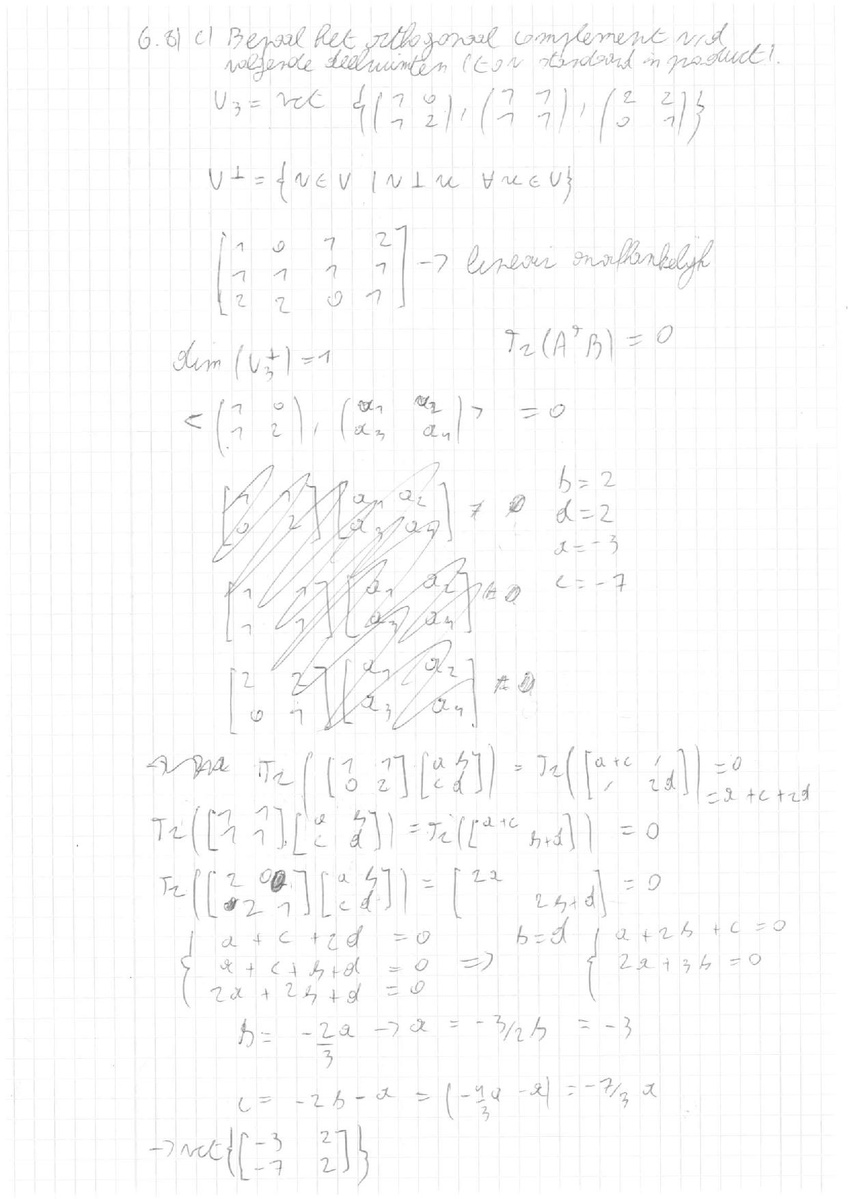 6.8) c) Bepaal het orthogonaal complement v/d
volgende deelruimten (tov standaard inproduct).
U₃ = vct {(1 0; 1 2), (1 1; 1 1), (2 2; 0 1)}
U⊥ = {v ∈ V | v ⊥ u ∀ u ∈ U}
[1 0 1 2; 1 1 1 1; 2 2 0 1] → lineair onafhankelijk
dim (U₃⊥) = 1
Tr(AᵀB) = 0
<(1 0; 1 2), (a₁ a₂; a₃ a₄)> = 0
[1 1; 0 2] [a₁ a₂; a₃ a₄] = 0
b = 2
d = 2
a = -3
c = -7
[1 1; 1 1] [a₁ a₂; a₃ a₄] = 0
[2 2; 0 1] [a₁ a₂; a₃ a₄] = 0
Tr([1 1; 0 2] [a b; c d]) = Tr([a+c , ; , 2d]) = 0
= a + c + 2d
Tr([1 1; 1 1] [a b; c d]) = Tr([a+c b+d]) = 0
Tr([2 0; 2 1] [a b; c d]) = [2a 2b+d] = 0
{ a + c + 2d = 0
a + c + b + d = 0 =>
2a + 2b + d = 0
b = d { a + 2b + c = 0
2a + 3b = 0
b = -2a/3 → a = -3/2 b = -3
c = -2b - a = (-4/3 a - a) = -7/3 a
→ vct{[-3 2; -7 2]}